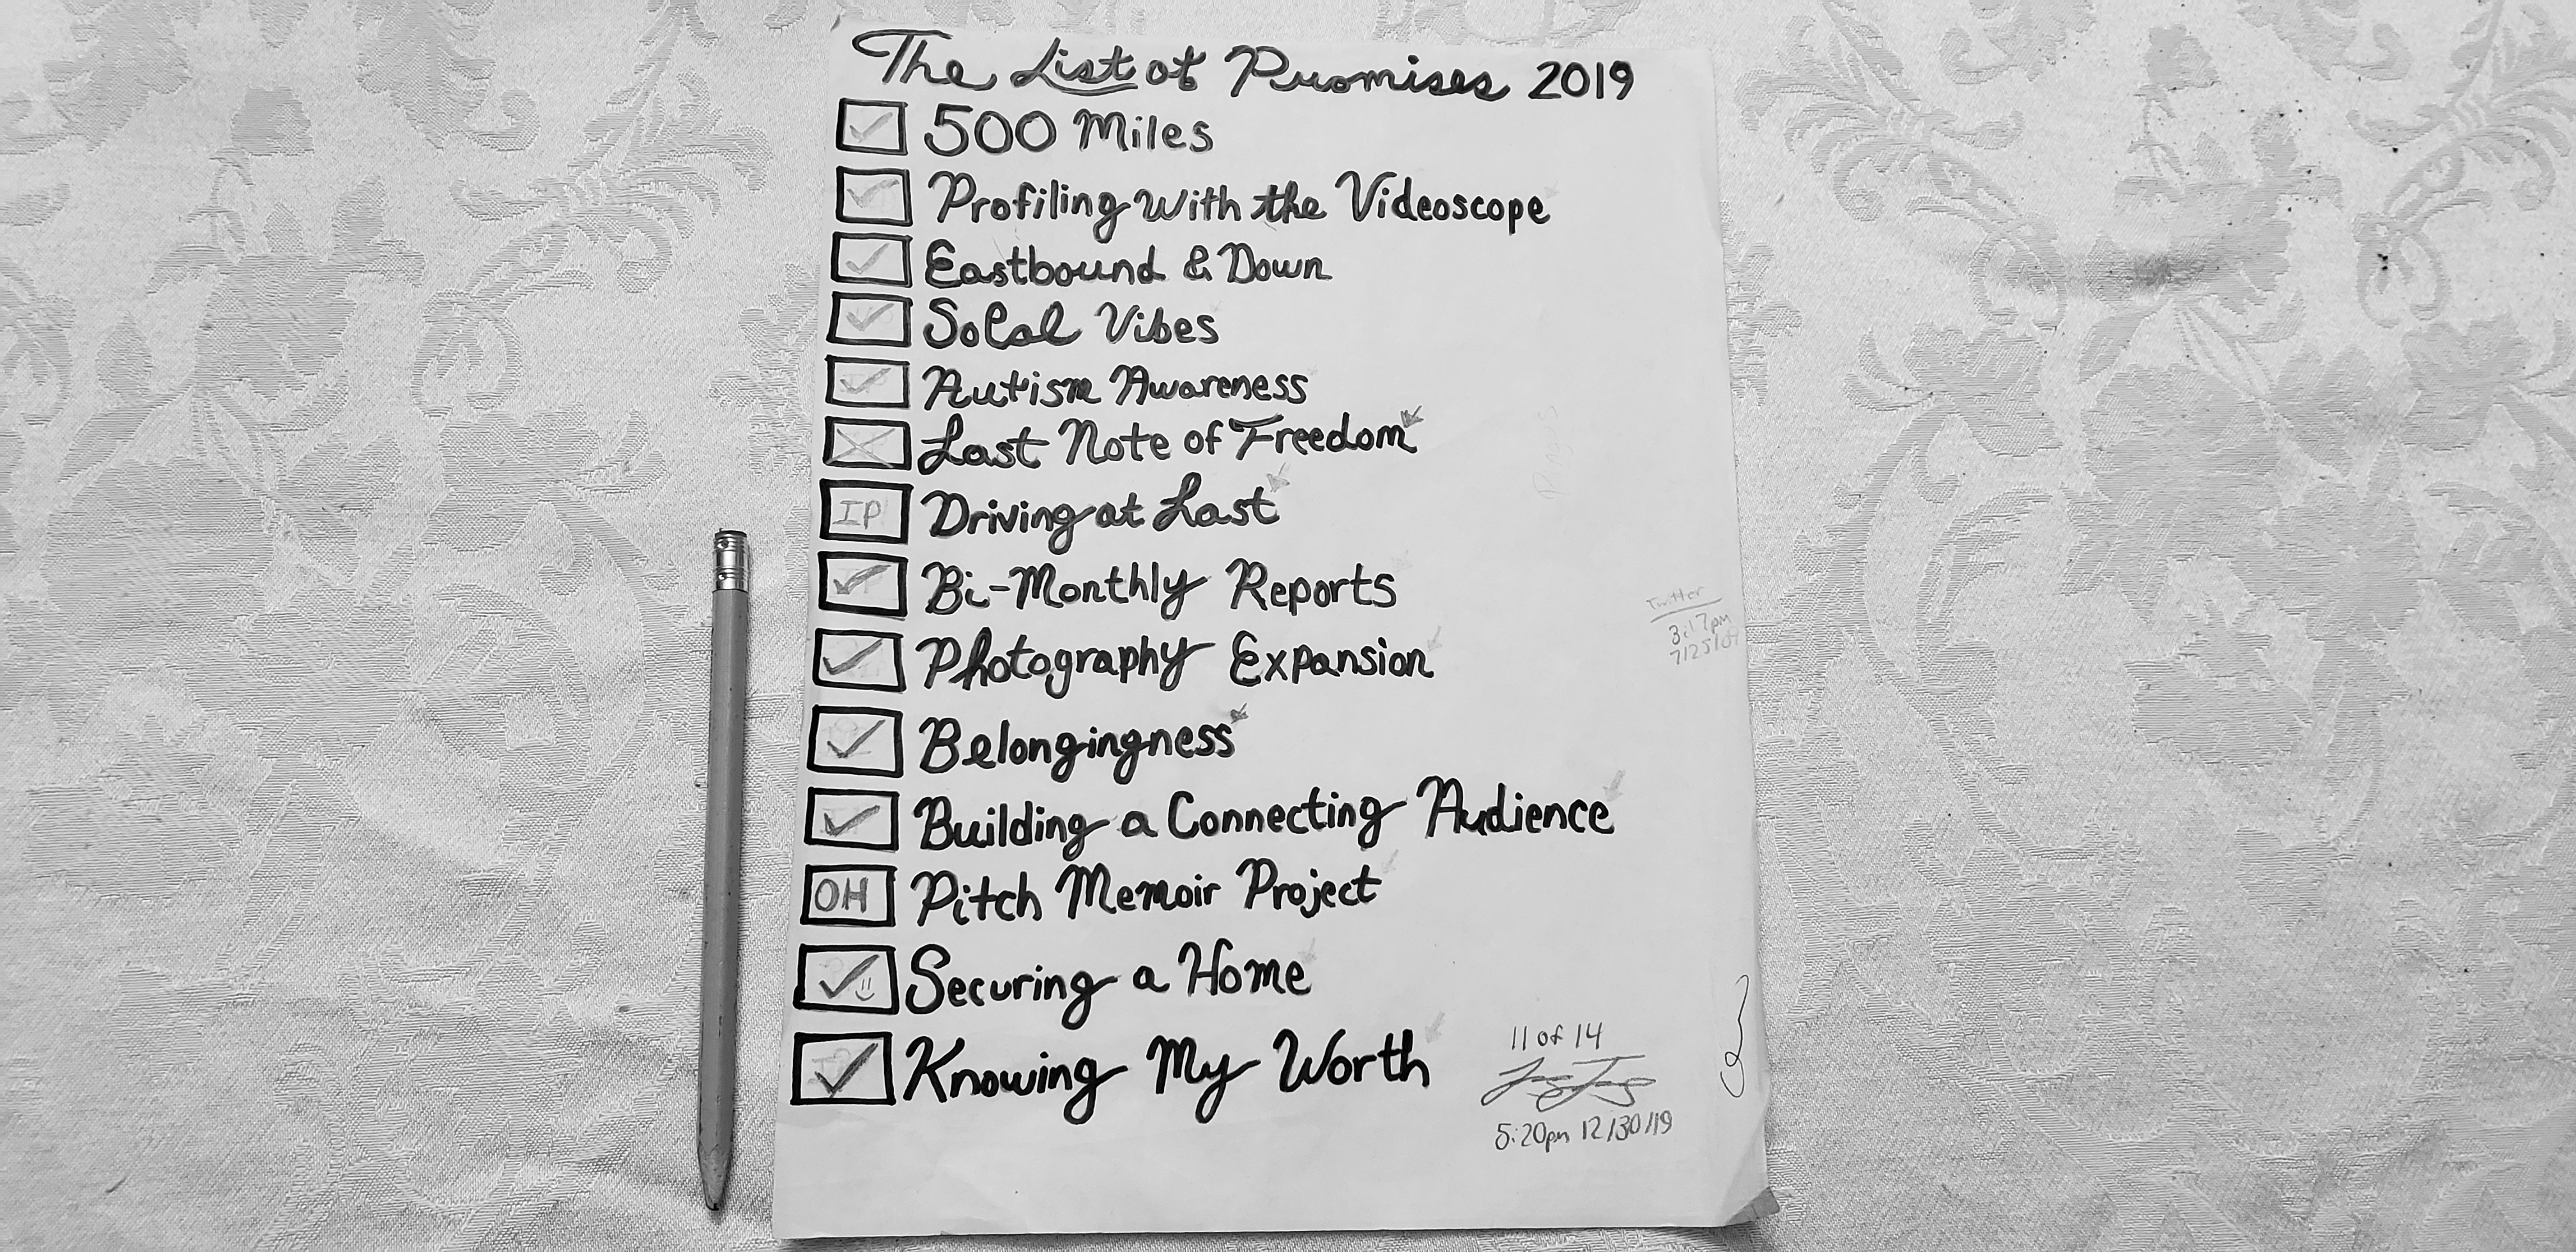 The List of Promises 2019
500 Miles
Profiling With the Videoscope
Eastbound & Down
SoCal Vibes
Autism Awareness
Last Note of Freedom
IP Driving at Last
Bi-Monthly Reports
Twitter
3:17pm
Photography Expansion
Belongingness
Building a Connecting Audience
OH Pitch Memoir Project
Securing a Home
Knowing My Worth
11 of 14
5:20pm 12/30/19